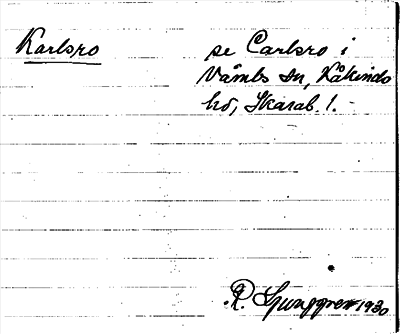 Karlsro
se Carlsro i
Vâmbs sn, Kåkinds
hd, Skarab. l. -
R. Ljunggren 1930